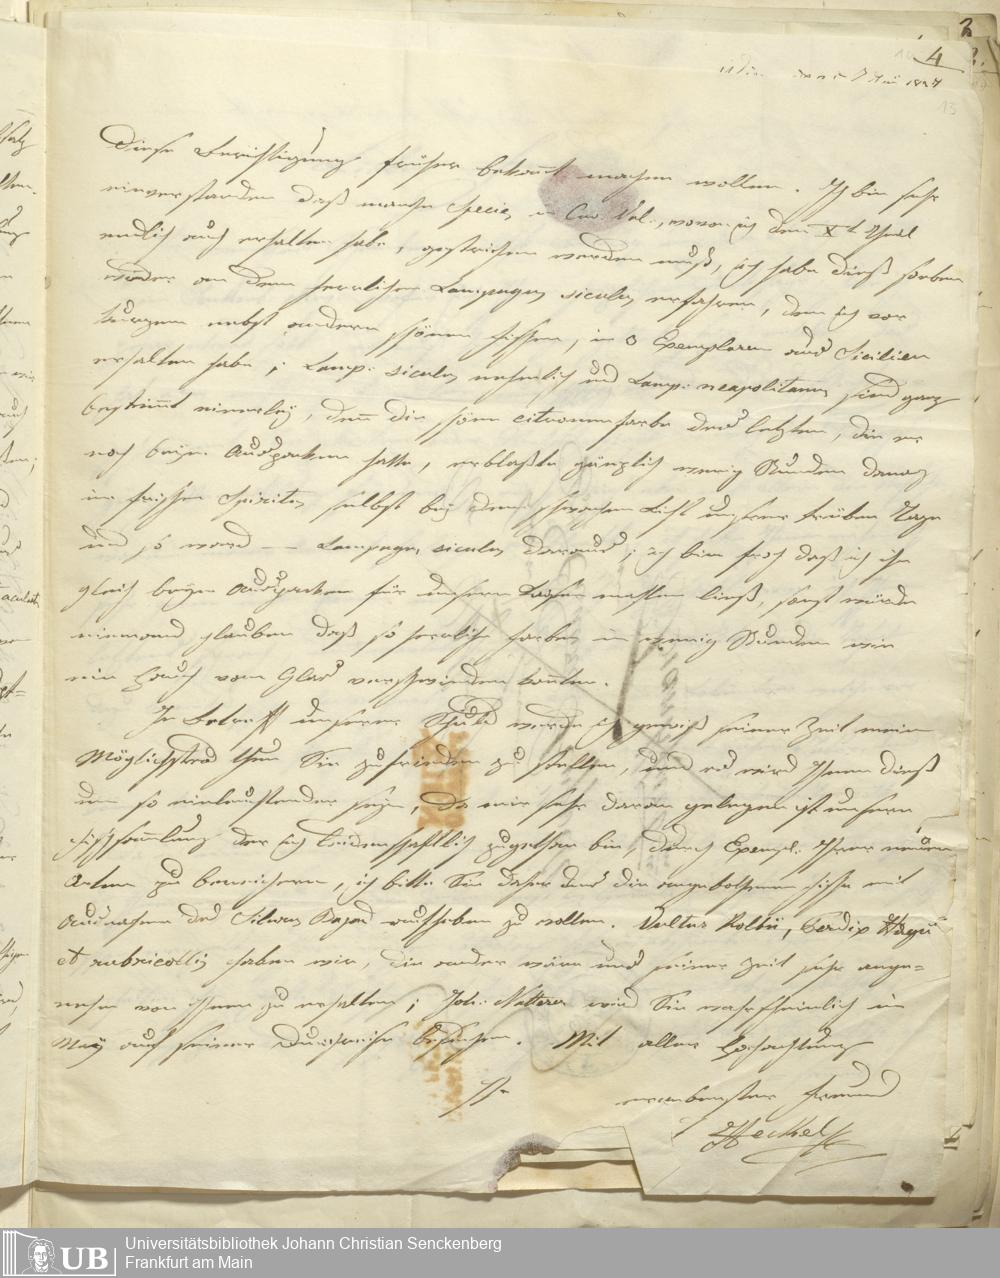 4
Wien den 5 1837
13
Diese Berichtigung früher bekannt machen wollen. Ich bin sehr
einverstanden daß manche Species in Cuv. Val., wovon ich den X t Theil
endlich auch erhalten habe, gestrichen werden muß, ich habe dieß soeben
wieder an dem herrlichen Lampugus siculus erfahren, den ich vor
Kurzem nebst andern schönen Fischen, in 8 Exemplaren aus Sicilien
erhalten habe; Lamp: siculus nehmlich und Lamp: neapolitanus sind ganz
bestimmt einerley, denn die schöne Citronenfarbe des letzten, die er
noch beym Auspacken hatte, erblaßte gänzlich wenig Stunden darauf
im frischen Spiritus selbst bey dem schwachen Licht unserer trüben Tage
und so ward — Lampugus siculus daraus; ich bin froh daß ich ihn
gleich beym Auspacken für unsern Kaiser mahlen ließ, sonst würde
niemand glauben daß so herrliche Farben in wenig Stunden wie
ein Hauch vom Glas verschwinden konnten.
In Betreff unserer Schuld werde ich gewiß seiner Zeit mein
Möglichstes thun Sie zufrieden zu stellen, und es wird Ihnen dieß
um so einleuchtender seyn, da mir sehr daran gelegen ist unsere
Fischsammlung der ich leidenschaftlich zugethan bin, durch Exempl: Ihrer neuen
Arten zu bereichern, ich bitte Sie daher uns die angebothenen Fische mit
Ausnahme des Silurus Bajad aufheben zu wollen. Vultur Kolbii, Perdix
et rubricollis haben wir, die andern wären uns seiner Zeit sehr ange=
nehm von Ihnen zu erhalten; Joh: Natterer wird Sie wahrscheinlich im
May auf seiner Durchreise besuchen. Mit aller Hochachtung
Ihr
ergebenster Freund
JHeckel
UB
Universitätsbibliothek Johann Christian Senckenberg
Frankfurt am Main